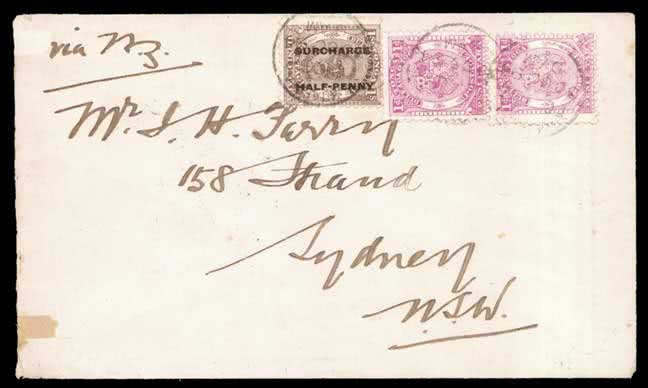 via NZ.
SURCHARGE
HALF-PENNY
1d
1d
Mr. S. H. Terry
158 Strand
Sydney
N.S.W.